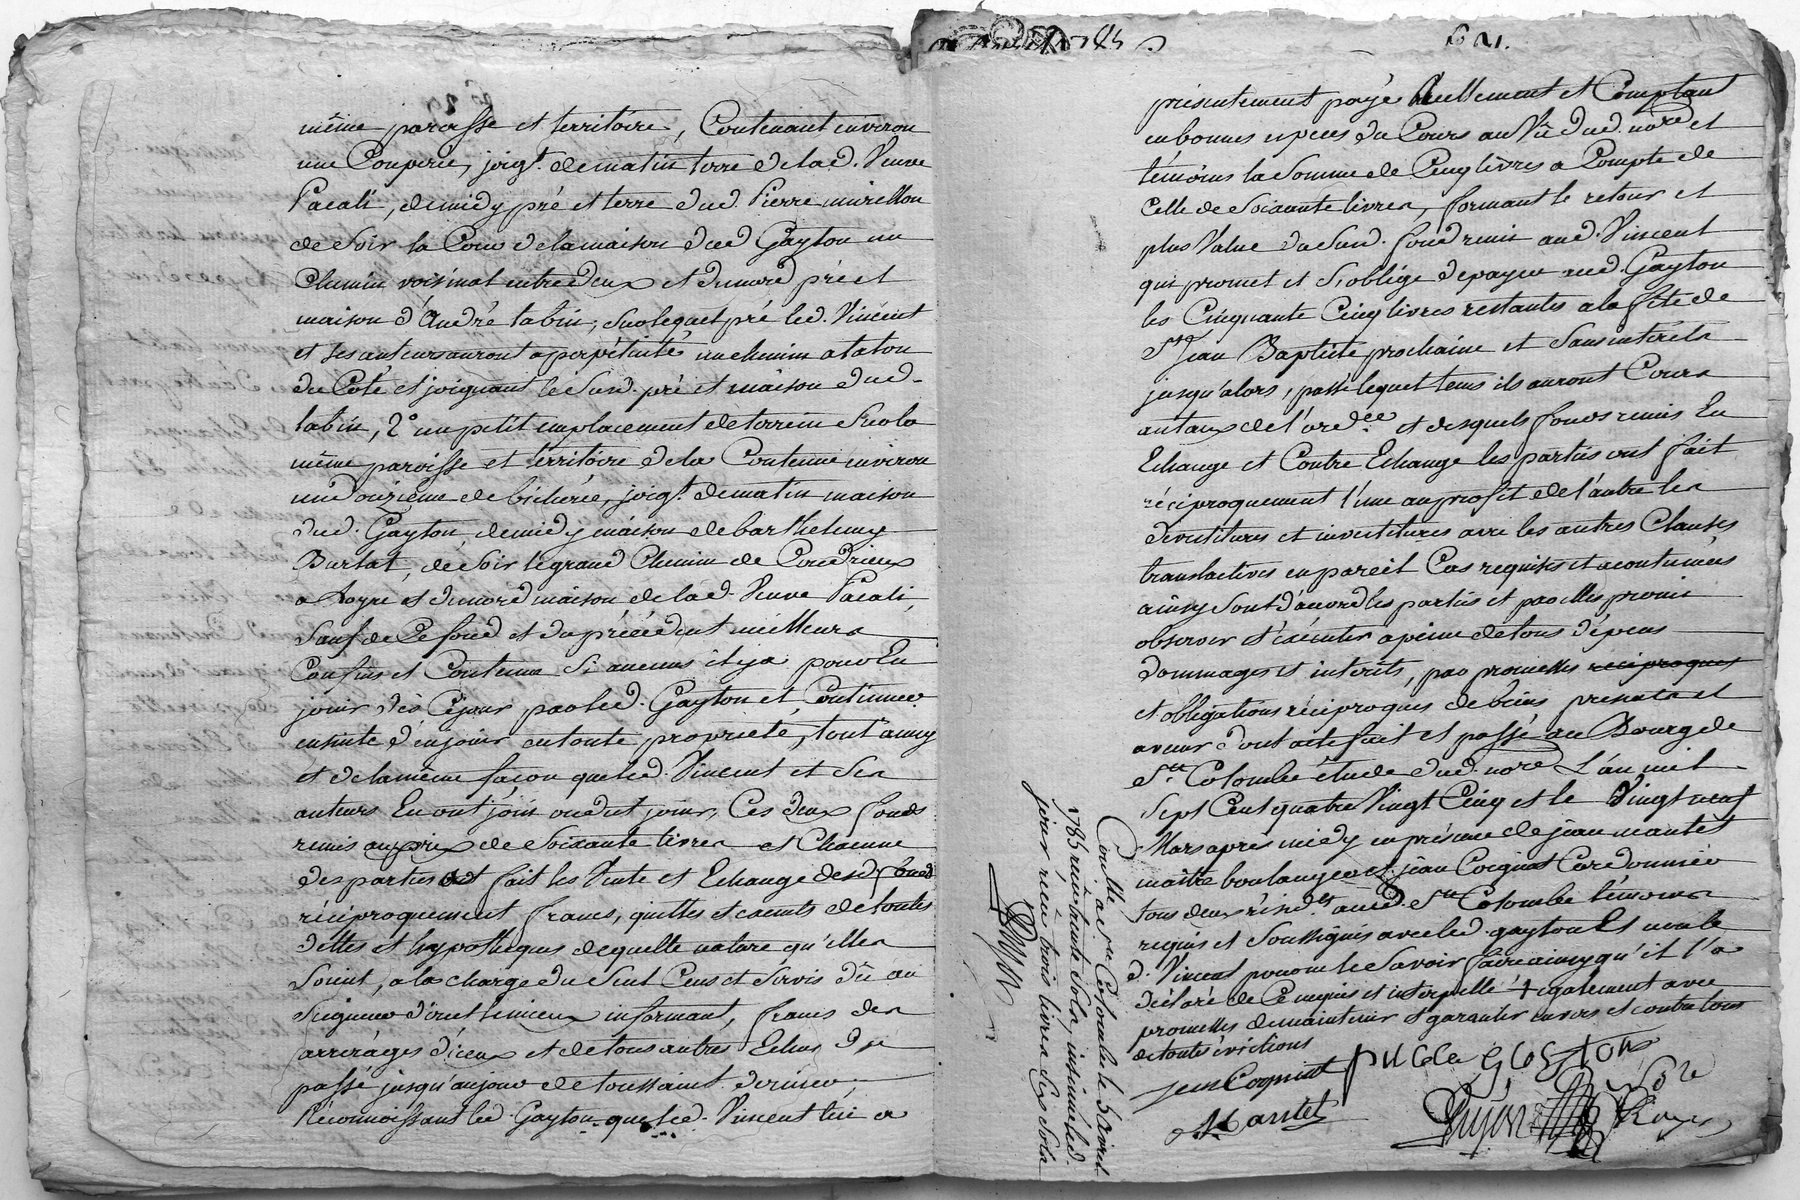 même paroisse et territoire, Contenant environ
une Couperie, joigt. de matin terre de lad. Veuve
Pacali, de midy pré et terre dud. Pierre
de Soir la Cour de la maison dud Gayton un
Chemin voisinal entre deux et du nord pré et
maison d'André tabin; Sur lequel pré led. Vincent
et ses auteurs auront a perpétuité un chemin a talon
du Coté et joignant le Susd. pré et maison dud.
tabin, 2° un petit emplacement de terrein Sur la
même paroisse et territoire de la Contenue environ
un Douzieme de bicherée, joigt. de matin maison
dud. Gayton, de midy maison de barthelemy
Burlat, de Soir le grand Chemin de Condrieux
a Loyre et du nord maison de lad. Veuve Pacali,
Sauf de Ce fond et du précédent meilleurs
Confins et Contenue Si aucuns il y a pour En
jouir dès Cejour par led. Gayton et Continuer
ensuite d'en jouir en toute propriété, tout ainsy
et de la même façon que led. Vincent et Ses
auteurs En ont joui ou dut jouir, Ces deux fonds
remis au prix de Soixante livres et Chacune
des parties ont fait les Vente et Echange desd. fonds
réciproquement francs, quittes et exempts de toutes
dettes et hypotheques de quelle nature qu'elles
Soint, a la charge du Seul Cens et Servis dû au
Seigneur direct l'imeux informant, francs des
arrérages d'iceux et de tous autres Echus du
passé jusqu'aujour de toussaint dernier;
Reconnoissant led. Gayton que led. Vincent lui a
1785
621.
présentement payé Reellement et Comptant
en bonnes especes du Cours au Vû dud. nore et
témoins la Somme de Cinq livres a Compte de
Celle de Soixante livres, formant le retour et
plus Value du Susd. fond remis aud. Vincent
qui promet et S'oblige de payer aud. Gayton
les Cinquante Cinq livres restantes a la fête de
St. jean Baptiste prochaine et Sans interets
jusqu'alors, passé lequel tems ils auront Cours
au taux de l'ordce. et desquels fonds remis En
Echange et Contre Echange les parties ont fait
réciproquement l'une au profit de l'autre les
devestitures et investitures avec les autres Clauses
translatives en pareil Cas requises et acoutumées
ainsy Sont d'accord les parties et par Elles promis
observer et éxécuter a peine de tous dépens
dommages et interets, par promesses réciproques
et obligations réciproques de biens presents et
avenir dont acte fait et passé au Bourg de
Ste. Colombe étude dud. nore L'an mil
Sept Cent quatre Vingt Cinq et le Vingt neuf
Mars apres midy en présence de jean mantel
maître boulanger et jean Coignat Cordonnier
tous deux résidts. aud. Ste Colombe témoins
requis et Soussignés avec led. gayton Et non le
d. Vincent pour ne le Savoir faire ainsy qu'il l'a
déclaré de Ce enquis et interpellé + également avec
promesses de maintenir et garantir envers et contre tous
de toutes évictions
jean Coignat
Mantel
Contllé. a Ste. Colombe le 5 avril
1785 reçu trente Sols, insinué led.
jour reçu trois livres Six Sols